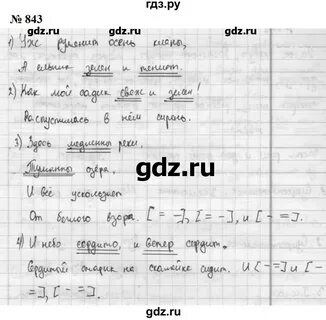 гдз.ру
№ 843
1) Уж румянит осень клены,
А ельник зелен и тенист.
2) Как мой садик свеж и зелен!
Распустилась в нём сирень.
gdz.ru
3) Здесь медленны реки,
Туманны озёра,
gdz.ru
И всё ускользает
От беглого взора. [= -], [= -], и [- =].
4) И небо сердито, и ветер сердит.
Сердитый старик на скамейке сидит. И [- =] и [-
=], [- =].
gdz.ru